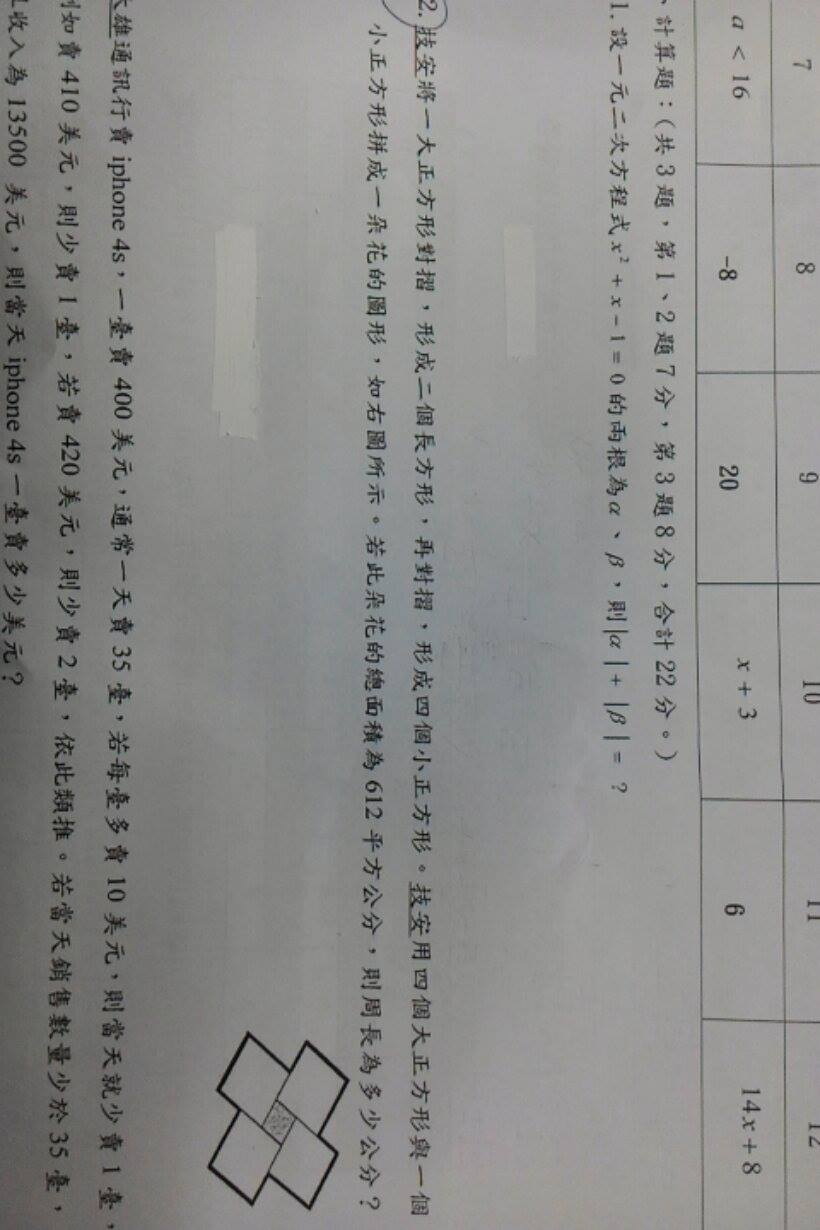 7 8 9 10 11 12
a < 16 -8 20 x + 3 6 14x + 8
、計算題：(共 3 題，第 1、2 題 7 分，第 3 題 8 分，合計 22 分。)
1. 設一元二次方程式 x² + x − 1 = 0 的兩根為 α、β，則 |α| + |β| = ？
2. 技安將一大正方形對摺，形成二個長方形，再對摺，形成四個小正方形。技安用四個大正方形與一個
小正方形拼成一朵花的圖形，如右圖所示。若此朵花的總面積為 612 平方公分，則周長為多少公分？
大雄通訊行賣 iphone 4s，一臺賣 400 美元，通常一天賣 35 臺，若每臺多賣 10 美元，則當天就少賣 1 臺，
例如賣 410 美元，則少賣 1 臺，若賣 420 美元，則少賣 2 臺，依此類推。若當天銷售數量少於 35 臺，
收入為 13500 美元，則當天 iphone 4s 一臺賣多少美元？